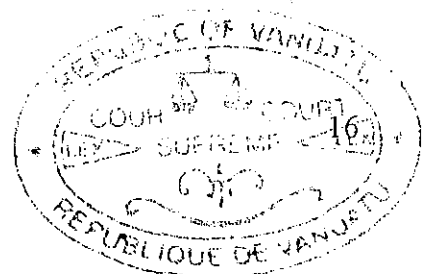 REPUBLIC OF VANUATU
COUR COURT
16
LEX SUPREME LEX
REPUBLIQUE DE VANUATU